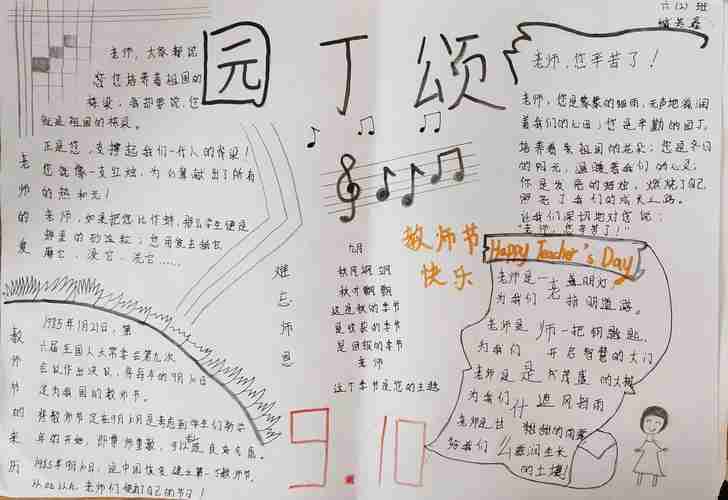 园丁颂
六(2)班
老师,大家都说
您培养着祖国的
栋梁;我却要说,您
就是祖国的栋梁。
正是您,支撑起我们一代人的脊梁!
您就像一支红烛,为
献出了所有
的热和光!
老师,如果把您比作蚌,那么学生便是
蚌里的砂粒;您用爱去舐它
磨它,浸它,洗它……
老师的爱
老师,您辛苦了!
老师,您是
细雨,无声地滋润
着我们的心田;您是辛勤的园丁,
培养着祖国的花朵;您是冬日
的阳光,温暖着我们的心灵;
你是发亮的蜡烛,燃烧了自己
照亮了我们的成长之路。
让我们深切地对您说:
"老师,您辛苦了!"
教师节
快乐
Happy Teacher's Day
难忘师恩
九月
秋风
秋叶翩翩
这是秋的季节
是收获的季节
是团拔的季节
老师
这个季节是您的主题
老师是什么
老师是一盏明灯,
为我们指明道路。
老师是一把钥匙,
为我们开启智慧的大门
老师是
茂盛的大树
为我们遮风挡雨
老师是
甜甜的雨露
给我们滋润生长
的土壤!
教师节的来历
1985年1月21日,第
六届全国人大常委会第九次
会议作出决议,将每年的9月10日
定为我国的教师节。
将教师节定在9月10日是考虑到学生们新学
年的开始,即尊师重教,可以
良好气氛。
1985年9月10日,是中国恢复建立第一个教师节,
老师们便有了自己的节日!
9.10